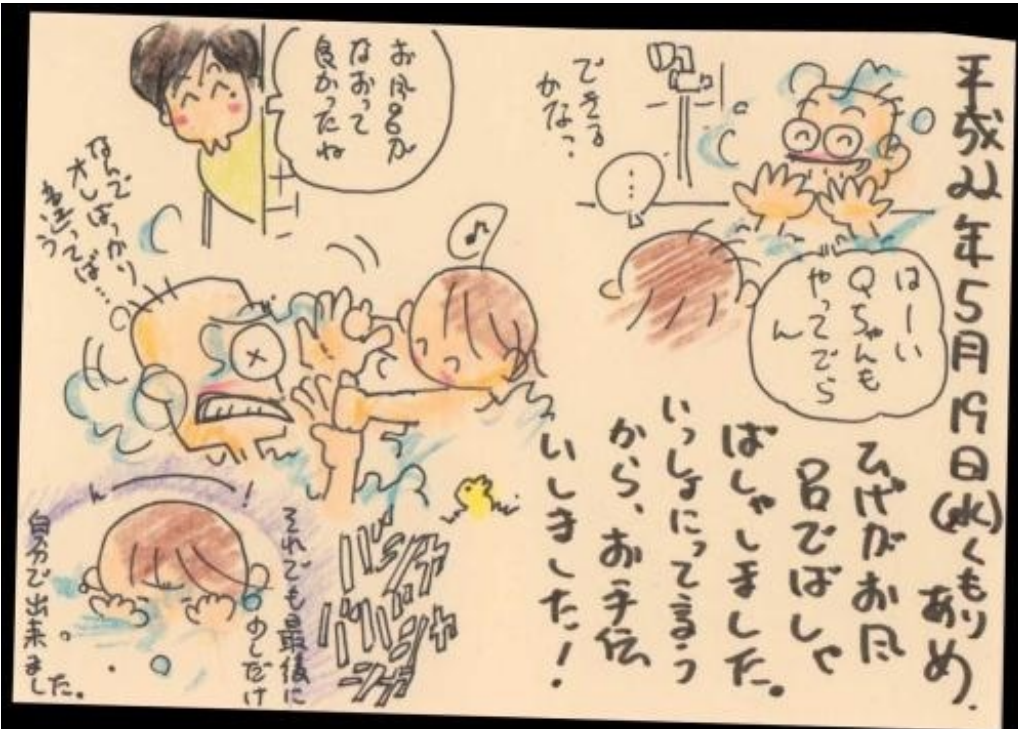 平成22年5月19日(水)くもり
あめ.
ひげがお風
呂でばしゃ
ばしゃしました。
いっしょにって言う
から、お手伝
いしました!
はーい
Qちゃんも
やってでら
ん
できる
かなっ
…
お風呂が
なおって
良かったね
なんで
オレばっかり
♪
バシャ
バシャ
それでも最後に
少しだけ
自分で出来ました。
ん
!